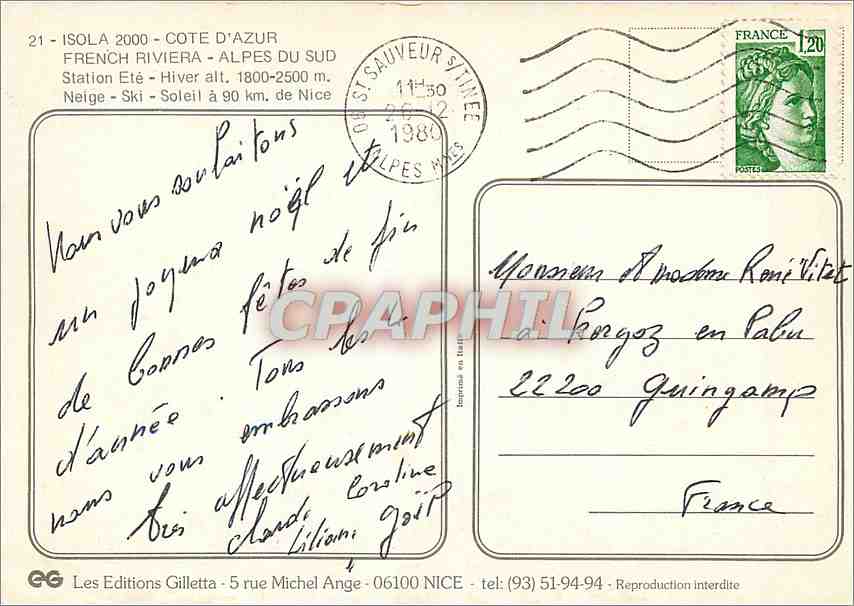 21 - ISOLA 2000 - COTE D'AZUR
FRENCH RIVIERA - ALPES DU SUD
Station Eté - Hiver alt. 1800-2500 m.
Neige - Ski - Soleil à 90 km. de Nice
06 ST SAUVEUR S/TINEE
11H30
26-12
1980
ALPES MMES
FRANCE
1,20
POSTES
Nous vous souhaitons
un joyeux noël et
de bonnes fêtes de fin
d'année. Tous les
nous vous embrassons
très affectueusement
Caroline
Liliane
CPRAPHIL
Imprimé en Italie
Monsieur et madame René Vitat
à Kergoz en Pabu
22200 Guingamp
France
Les Editions Gilletta - 5 rue Michel Ange - 06100 NICE - tel: (93) 51-94-94 - Reproduction interdite